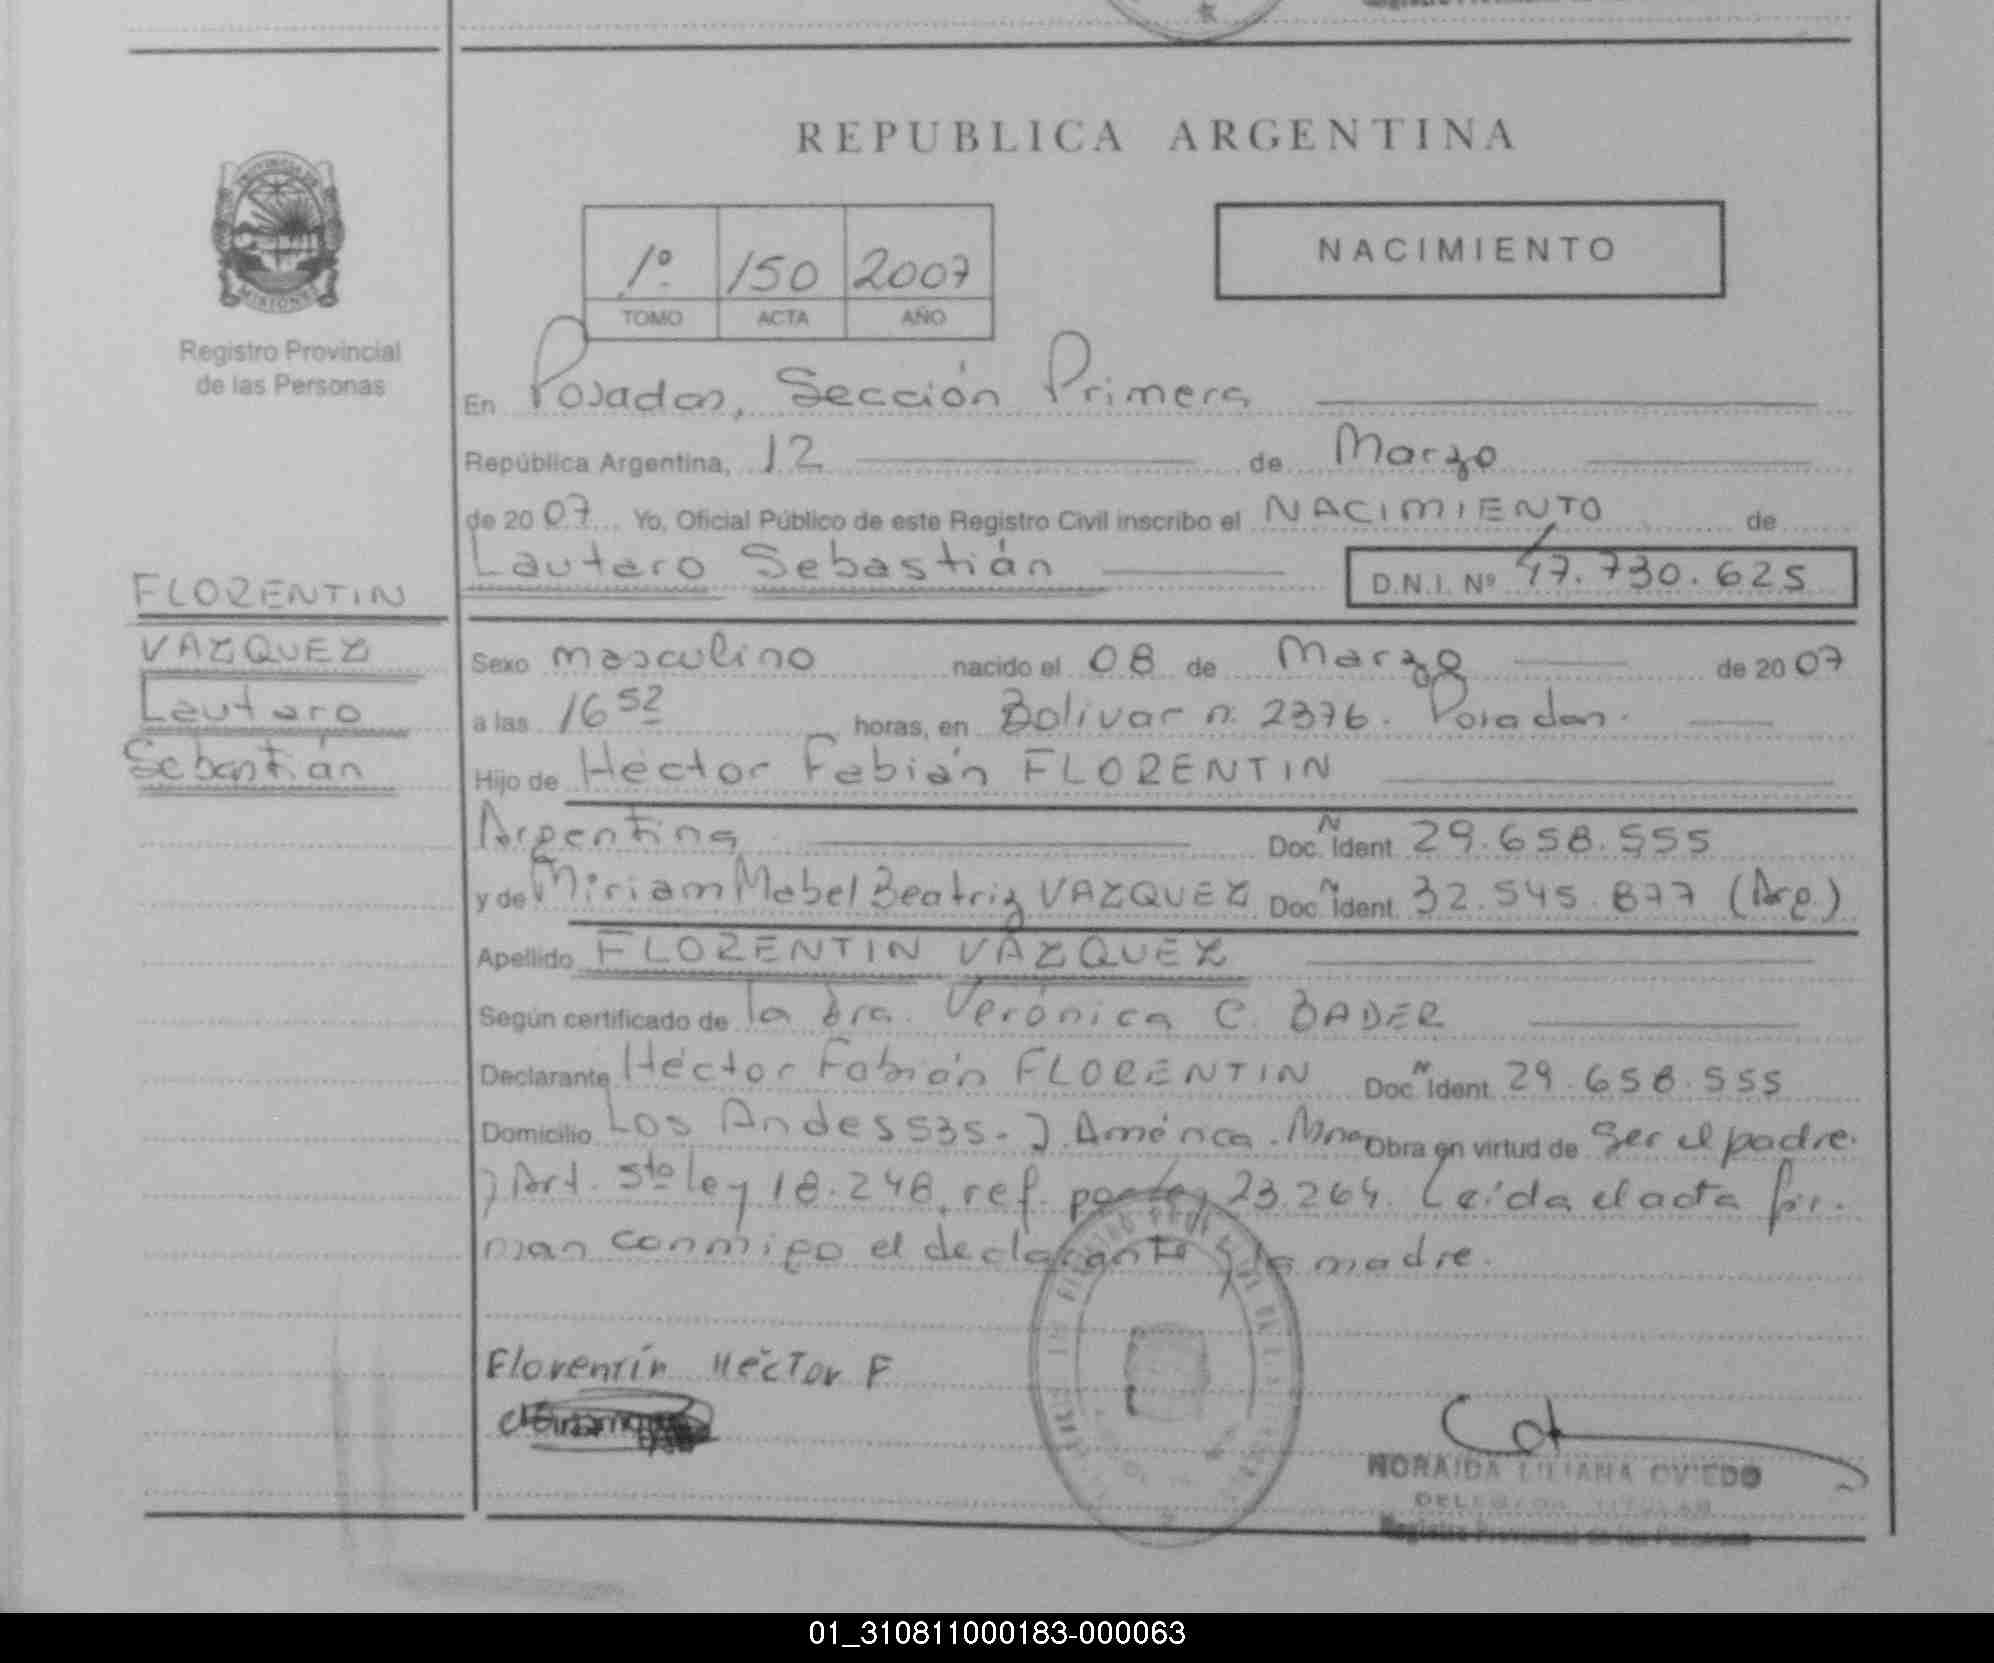 REPUBLICA ARGENTINA
PROVINCIA DE
MISIONES
Registro Provincial
de las Personas
1º 150 2007
TOMO ACTA AÑO
NACIMIENTO
En Posadas, Sección Primera
República Argentina, 12 de Marzo
de 2007 Yo, Oficial Público de este Registro Civil inscribo el NACIMIENTO de
Lautaro Sebastián D.N.I. Nº 47.730.625
FLORENTIN
VAZQUEZ
Lautaro
Sebastián
Sexo masculino nacido el 08 de Marzo de 2007
a las 16 52 horas, en Bolivar n: 2376. Posadas.
Hijo de Héctor Fabián FLORENTIN
Argentina Doc. Ident. 29.658.555
y de Miriam Mabel Beatriz VAZQUEZ Doc. Ident. 32.545.877 (Arg.)
Apellido FLORENTIN VAZQUEZ
Según certificado de la Dra. Verónica C. BADER
Declarante Héctor Fabián FLORENTIN Doc. Ident. 29.658.555
Domicilio Los Andes 535. J. América. Mnes Obra en virtud de ser el padre.
) Art. 5to ley 18.248, ref. por ley 23.264. Leída el acta fir-
man conmigo el declarante y la madre.
Florentín Héctor F
NORAIDA LILIANA OVIEDO
DELEGADA TITULAR
Registro Provincial de las Personas
01_310811000183-000063